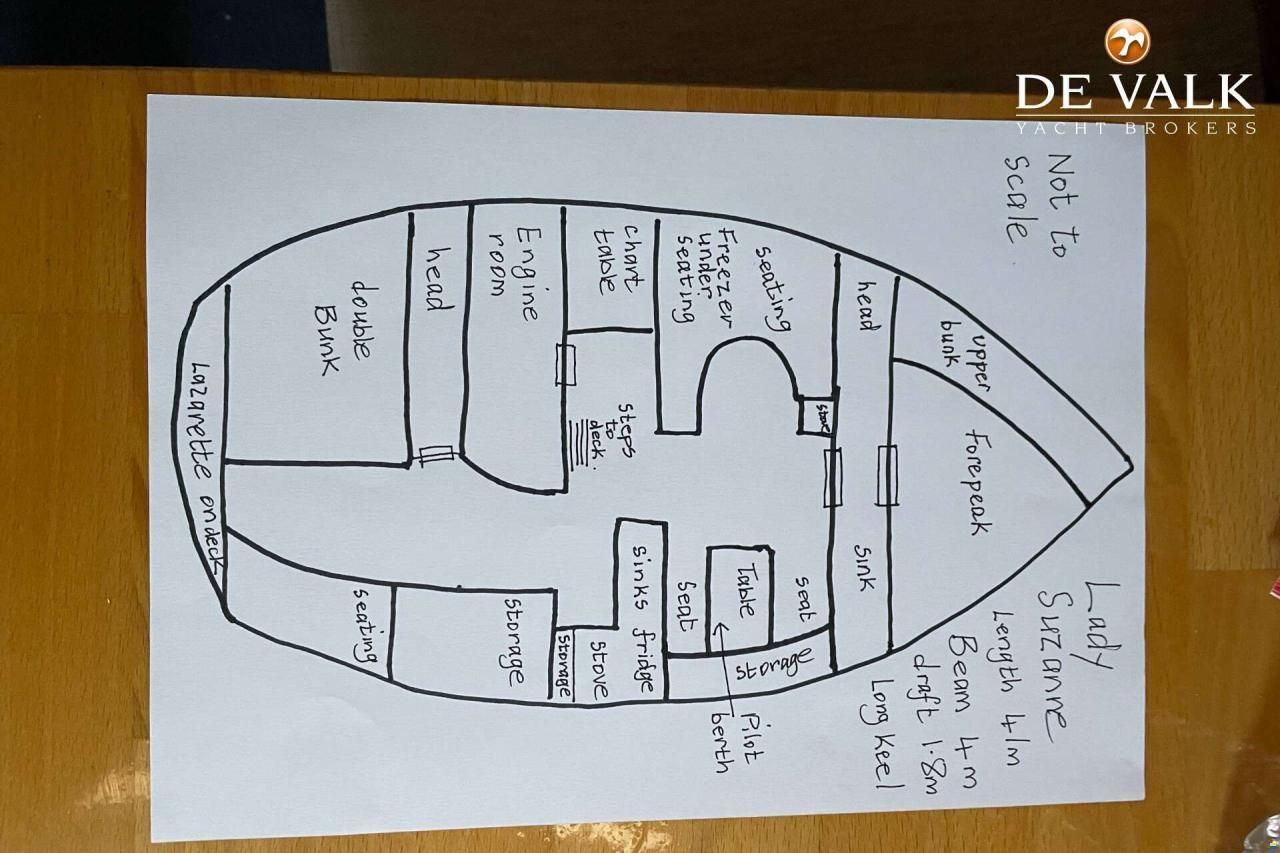 DE VALK
YACHT BROKERS
Not to
Scale
Lady
Suzanne
Length 41m
Beam 4m
draft 1.8m
Long Keel
upper
bunk
Forepeak
head
sink
seating
Freezer
under
seating
stove
seat
Table
seat
storage
Pilot
berth
chart
table
steps
to
deck.
sinks fridge
stove
storage
Engine
room
storage
head
double
Bunk
seating
Lazarette on deck